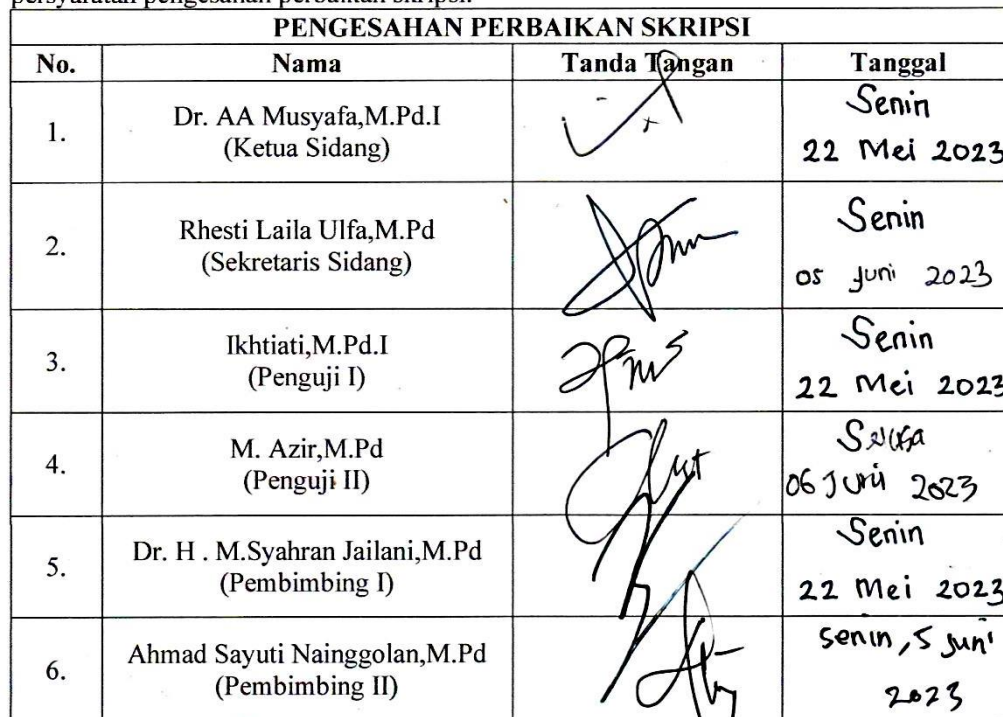 persyaratan pengesahan perbaikan skripsi.
PENGESAHAN PERBAIKAN SKRIPSI
No. Nama Tanda Tangan Tanggal
1. Dr. AA Musyafa,M.Pd.I
(Ketua Sidang)
Senin
22 Mei 2023
2. Rhesti Laila Ulfa,M.Pd
(Sekretaris Sidang)
Senin
05 Juni 2023
3. Ikhtiati,M.Pd.I
(Penguji I)
Senin
22 Mei 2023
4. M. Azir,M.Pd
(Penguji II)
Selasa
06 Juni 2023
5. Dr. H . M.Syahran Jailani,M.Pd
(Pembimbing I)
Senin
22 Mei 2023
6. Ahmad Sayuti Nainggolan,M.Pd
(Pembimbing II)
Senin, 5 Juni
2023